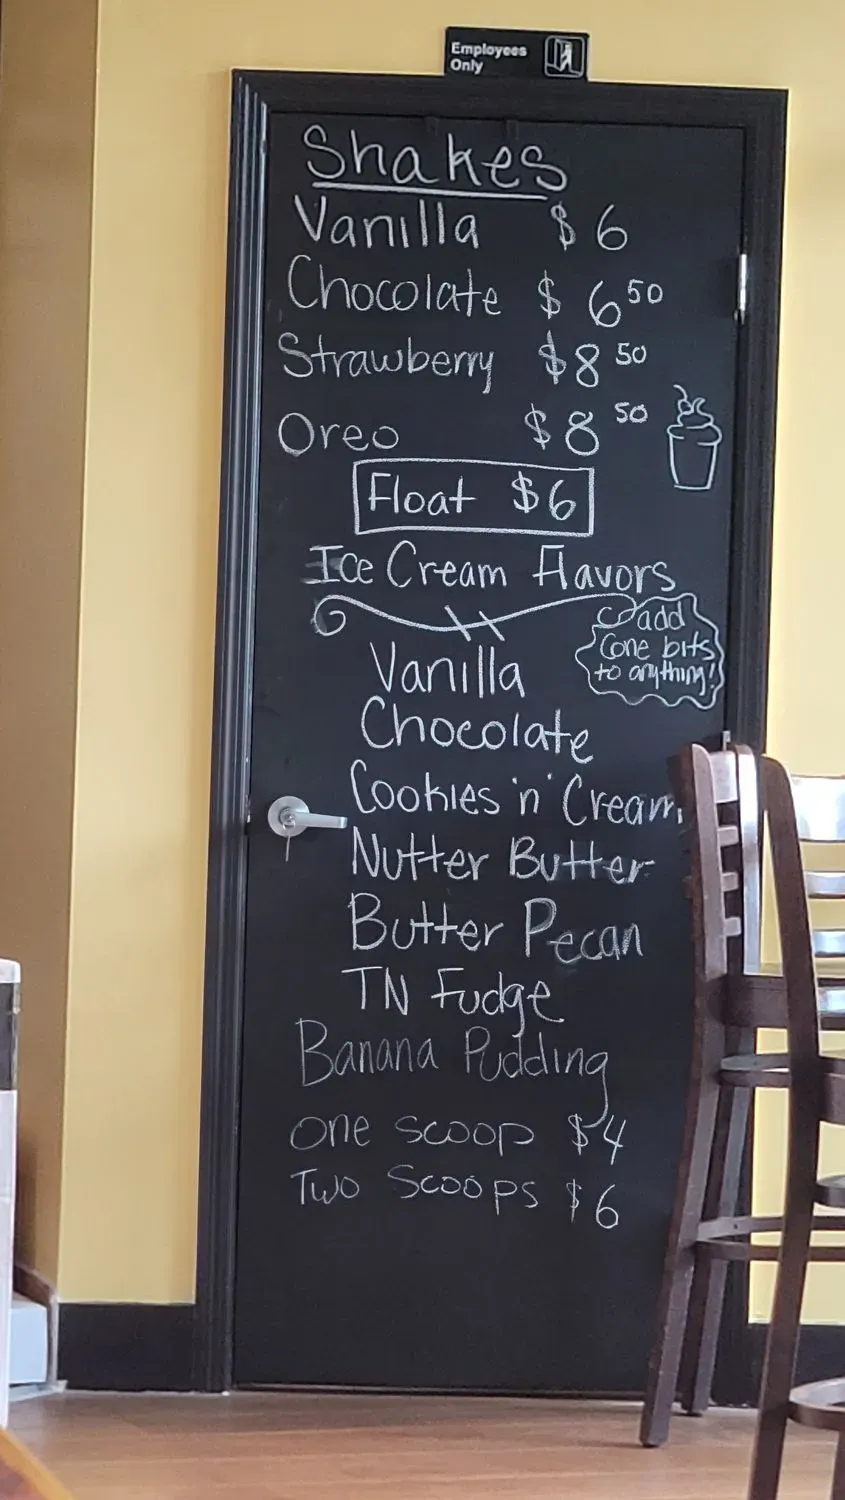 Employees
Only
Shakes
Vanilla $ 6
Chocolate $ 6 50
Strawberry $8 50
Oreo $8 50
Float $6
Ice Cream Flavors
add
Cone bits
to anything!
Vanilla
Chocolate
Cookies 'n' Cream
Nutter Butter
Butter Pecan
TN Fudge
Banana Pudding
One scoop $4
Two Scoops $6